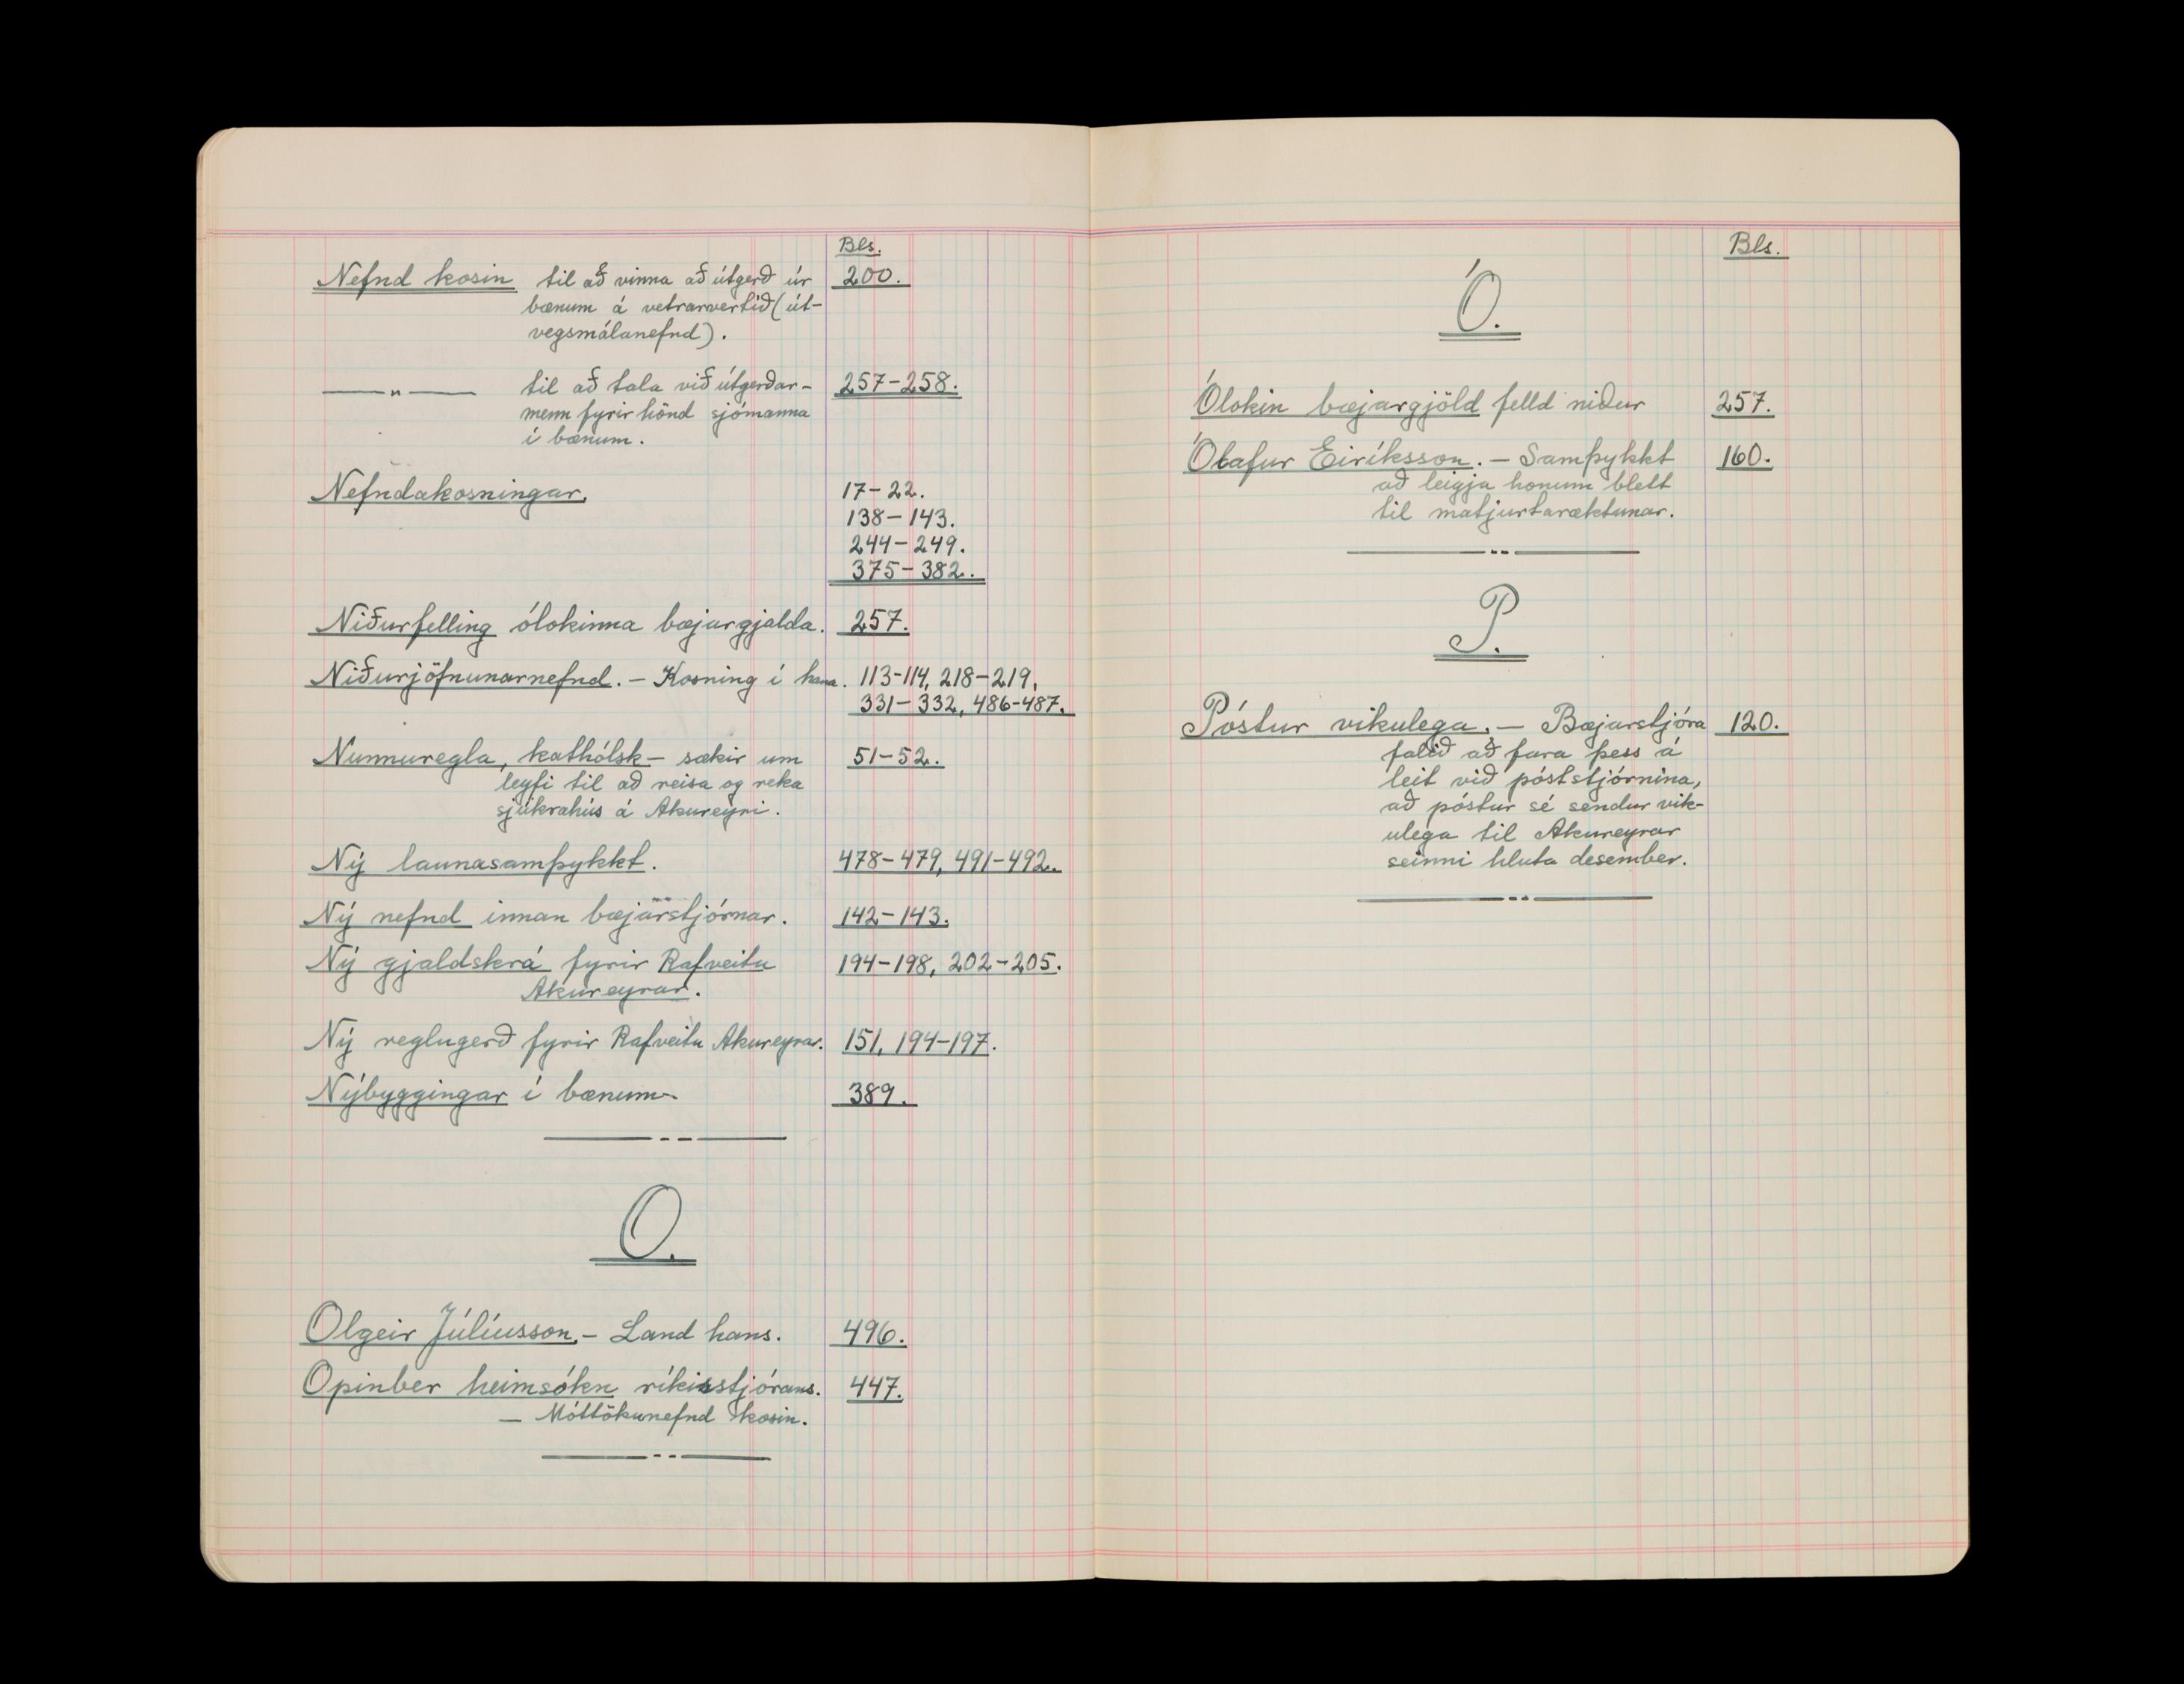 Bls.
Nefnd kosin til að vinna að útgerð úr 200.
bænum á vetrarvertíð (út-
vegsmálanefnd).
—"— til að tala við útgerðar- 257-258.
menn fyrir hönd sjómanna
í bænum.
Nefndakosningar. 17-22.
138-143.
244-249.
375-382.
Niðurfelling ólokinna bæjargjalda. 257.
Niðurjöfnunarnefnd. - Kosning í hana. 113-114, 218-219,
331-332, 486-487.
Nunnuregla, kathólsk - sækir um 51-52.
leyfi til að reisa og reka
sjúkrahús á Akureyri.
Ný launasamþykkt. 478-479, 491-492.
Ný nefnd innan bæjarstjórnar. 142-143.
Ný gjaldskrá fyrir Rafveitu 194-198, 202-205.
Akureyrar.
Ný reglugerð fyrir Rafveitu Akureyrar. 151, 194-197.
Nýbyggingar í bænum. 389.
O.
Olgeir Júlíusson. - Land hans. 496.
Opinber heimsókn ríkisstjórans. 447.
- Móttökunefnd kosin.
Bls.
Ó.
Ólokin bæjargjöld felld niður 257.
Ólafur Eiríksson. - Samþykkt 160.
að leigja honum blett
til matjurtaræktunar.
P.
Póstur vikulega. - Bæjarstjóra 120.
falið að fara þess á
leit við póststjórnina,
að póstur sé sendur vik-
ulega til Akureyrar
seinni hluta desember.